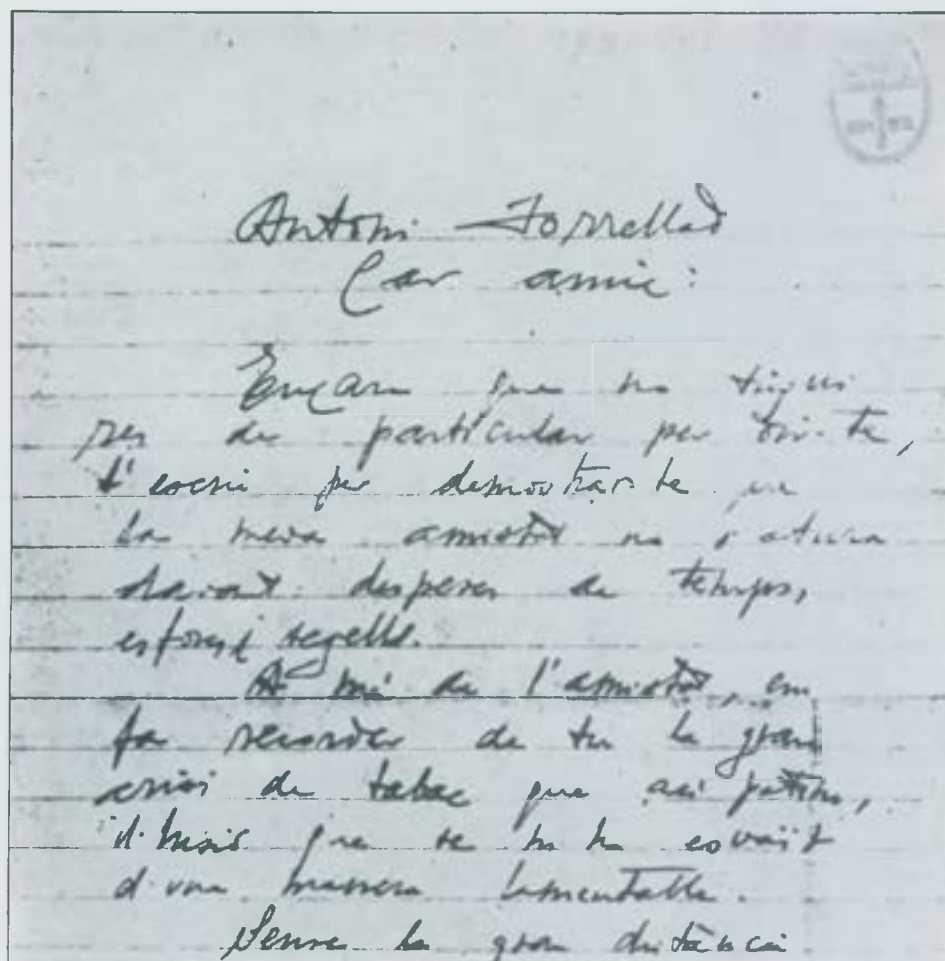 Antoni Torrellad
Car amic:
Encara que no tingui
res de particular per dir-te,
t'escric per demostrar-te que
la meva amistat no s'atura
davant despeses de temps,
esforç i segells.
A més de l'amistat, em
fa recordar de tu la gran
crisi de tabac que ací patim,
que se'm ha esvaït
d'una manera lamentable.
Sense la gran distància